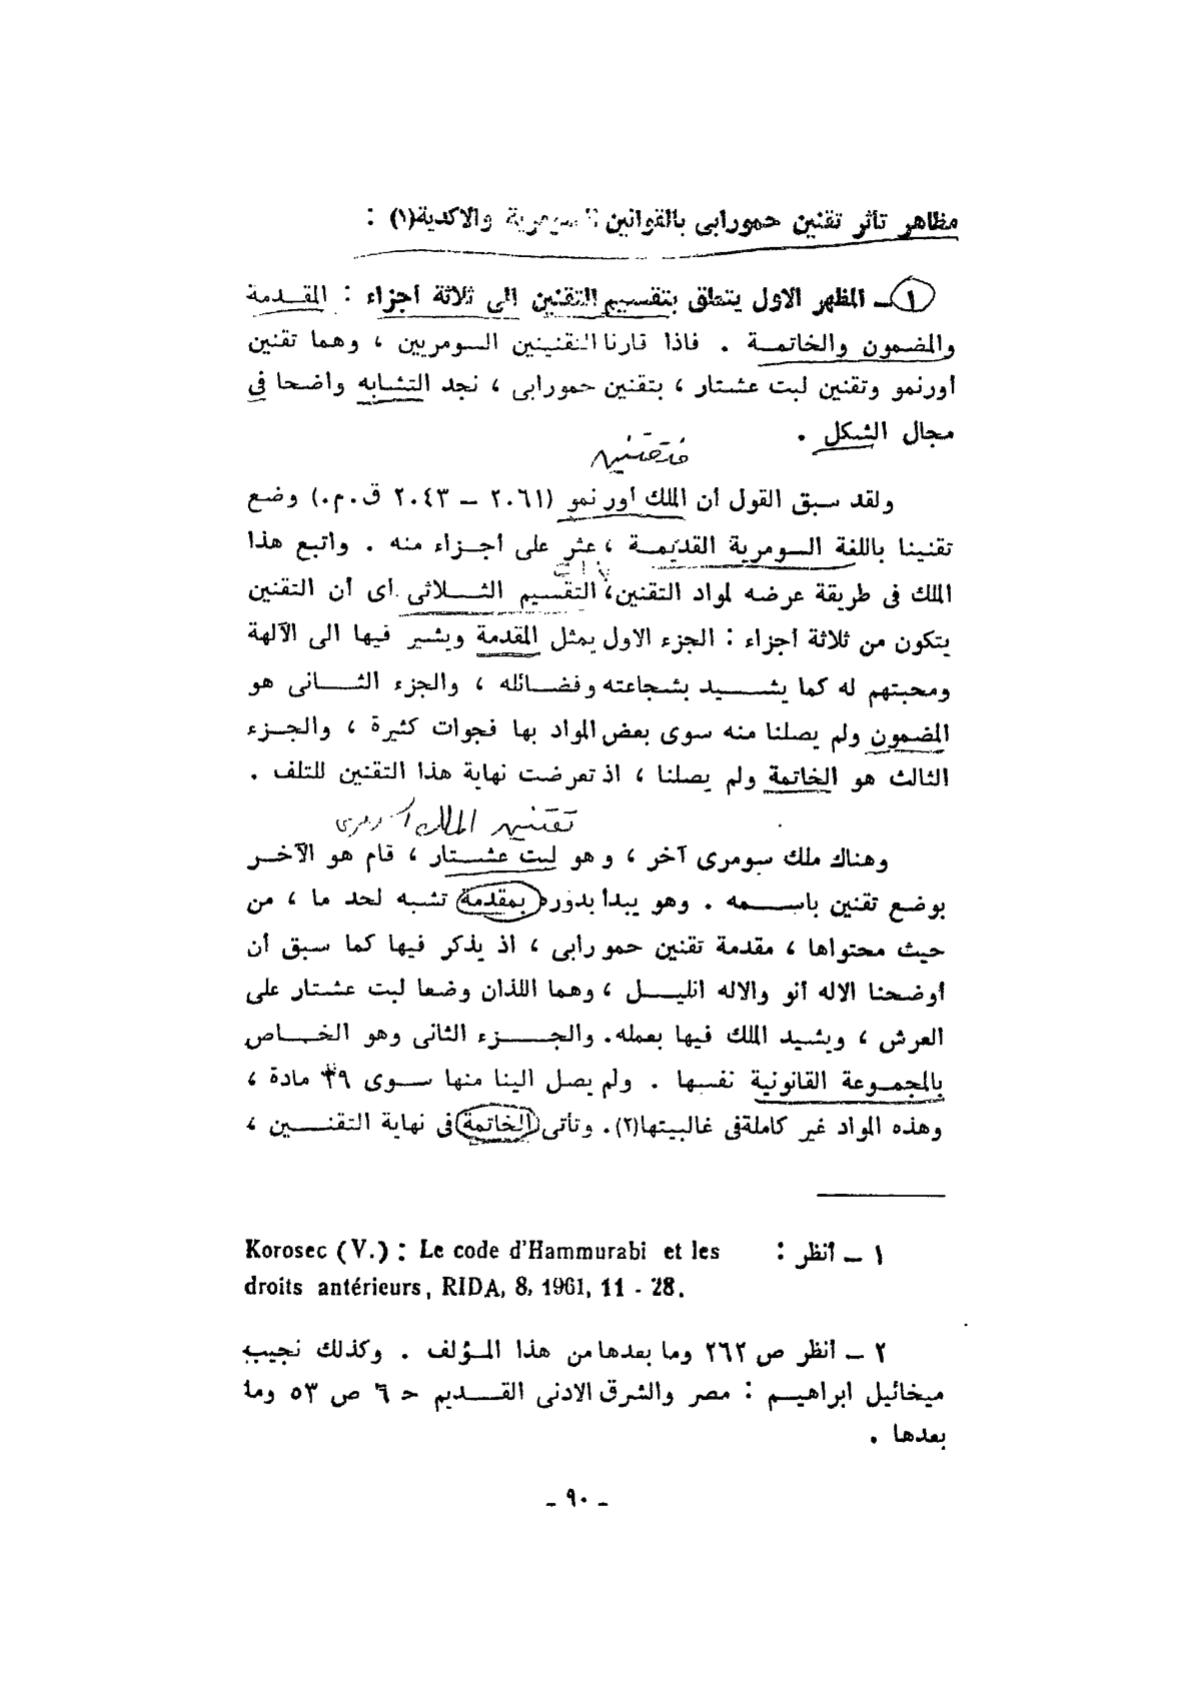 مظاهر تأثر تقنين حمورابى بالقوانين السومرية والاكدية(١) :
١ ـ المظهر الاول يتعلق بتقسيم التقنين الى ثلاثة أجزاء : المقدمة
والمضمون والخاتمة . فاذا قارنا التقنينين السومريين ، وهما تقنين
أورنمو وتقنين لبت عشتار ، بتقنين حمورابى ، نجد التشابه واضحا فى
مجال الشكل .
ولقد سبق القول أن الملك أورنمو (٢٠٦١ – ٢٠٤٣ ق.م.) وضع
تقنينا باللغة السومرية القديمة ، عثر على أجزاء منه . واتبع هذا
الملك فى طريقة عرضه لمواد التقنين، التقسيم الثلاثى أى أن التقنين
يتكون من ثلاثة أجزاء : الجزء الاول يمثل المقدمة ويشير فيها الى الآلهة
ومحبتهم له كما يشيد بشجاعته وفضائله ، والجزء الثانى هو
المضمون ولم يصلنا منه سوى بعض المواد بها فجوات كثيرة ، والجزء
الثالث هو الخاتمة ولم يصلنا ، اذ تعرضت نهاية هذا التقنين للتلف .
تقنين الملك
وهناك ملك سومرى آخر ، وهو لبت عشتار ، قام هو الآخر
بوضع تقنين باسمه . وهو يبدأ بدوره بمقدمة تشبه لحد ما ، من
حيث محتواها ، مقدمة تقنين حمورابى ، اذ يذكر فيها كما سبق أن
أوضحنا الاله آنو والاله انليل ، وهما اللذان وضعا لبت عشتار على
العرش ، ويشيد الملك فيها بعمله. والجزء الثانى وهو الخاص
بالمجموعة القانونية نفسها . ولم يصل الينا منها سوى ٣٩ مادة ،
وهذه المواد غير كاملة فى غالبيتها(٢). وتأتى الخاتمة فى نهاية التقنين ،
١ – أنظر : Korosec (V.) : Le code d'Hammurabi et les
droits antérieurs, RIDA, 8, 1961, 11 - 28.
٢ – أنظر ص ٢٦٢ وما بعدها من هذا المؤلف . وكذلك نجيب
ميخائيل ابراهيم : مصر والشرق الادنى القديم ح ٦ ص ٥٣ وما
بعدها .
- ٩٠ -